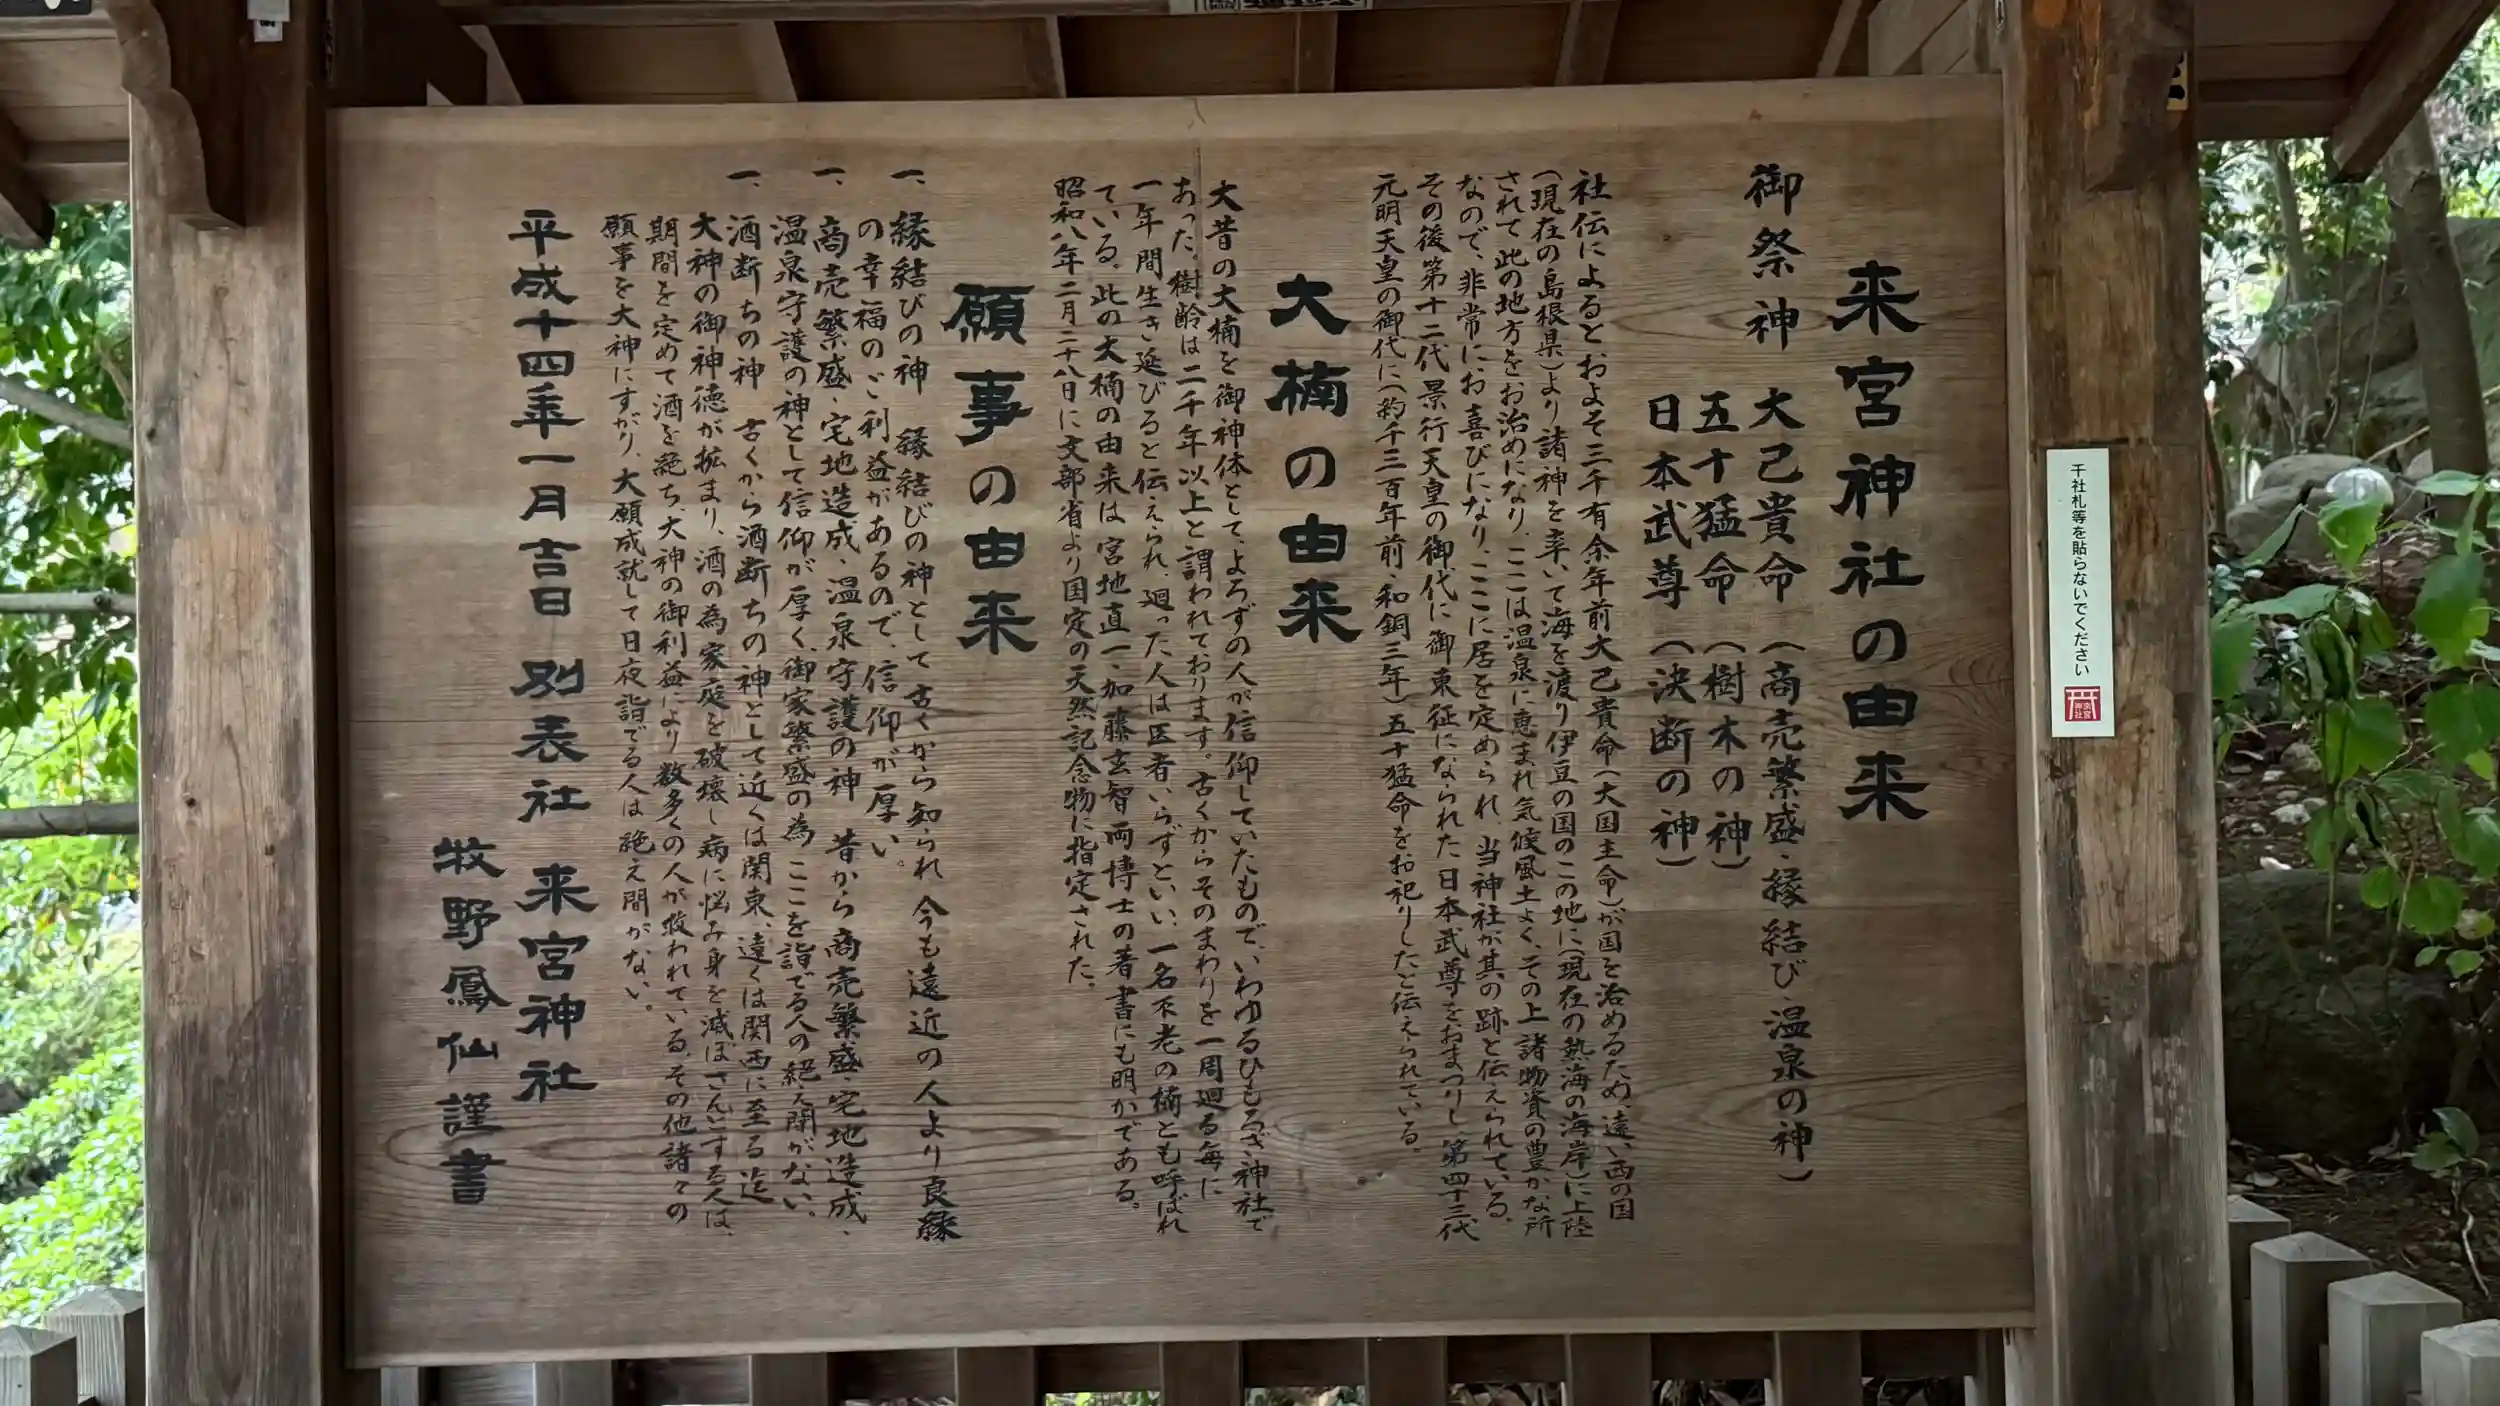 来宮神社の由来
御祭神 大己貴命 (商売繁盛・縁結び・温泉の神)
五十猛命 (樹木の神)
日本武尊 (決断の神)
社伝によるとおよそ三千有余年前大己貴命(大国主命)が国を治めるため、遠い西の国
(現在の島根県)より諸神を率いて海を渡り伊豆の国のこの地に(現在の熱海の海岸)に上陸
されて此の地方をお治めになり、ここは温泉に恵まれ気候風土よく、その上諸物資の豊かな所
なので、非常にお喜びになり、ここに居を定められ、当神社が其の跡と伝えられている。
その後第十二代景行天皇の御代に御東征になられた日本武尊をおまつりし、第四十三代
元明天皇の御代に(約千三百年前・和銅三年)五十猛命をお祀りしたと伝えられている。
大楠の由来
大昔の大楠を御神体として、よろずの人が信仰していたもので、いわゆるひもろぎ神社で
あった。樹齢は二千年以上と謂われております。古くからそのまわりを一周廻る毎に
一年間生き延びると伝えられ、廻った人は医者いらずといい、一名不老の楠とも呼ばれ
ている。此の大楠の由来は宮地直一・加藤玄智両博士の著書にも明かである。
昭和八年二月二十八日に文部省より国定の天然記念物に指定された。
願事の由来
一、縁結びの神 縁結びの神として古くから知られ今も遠近の人より良縁
の幸福のご利益があるので、信仰が厚い。
一、商売繁盛・宅地造成・温泉守護の神 昔から商売繁盛・宅地造成・
温泉守護の神として信仰が厚く、御家繁盛の為ここを詣でる人の絶え間がない。
一、酒断ちの神 古くから酒断ちの神として近くは関東、遠くは関西に至る迄
大神の御神徳が拡まり、酒の為家庭を破壊し病に悩み身を滅ぼさんとする人は、
期間を定めて酒を絶ち、大神の御利益により数多くの人が救われている。その他諸々の
願事を大神にすがり、大願成就して日夜詣でる人は絶え間がない。
平成十四年一月吉日 別表社 来宮神社
牧野鳳仙謹書
千社札等を貼らないでください
来宮神社